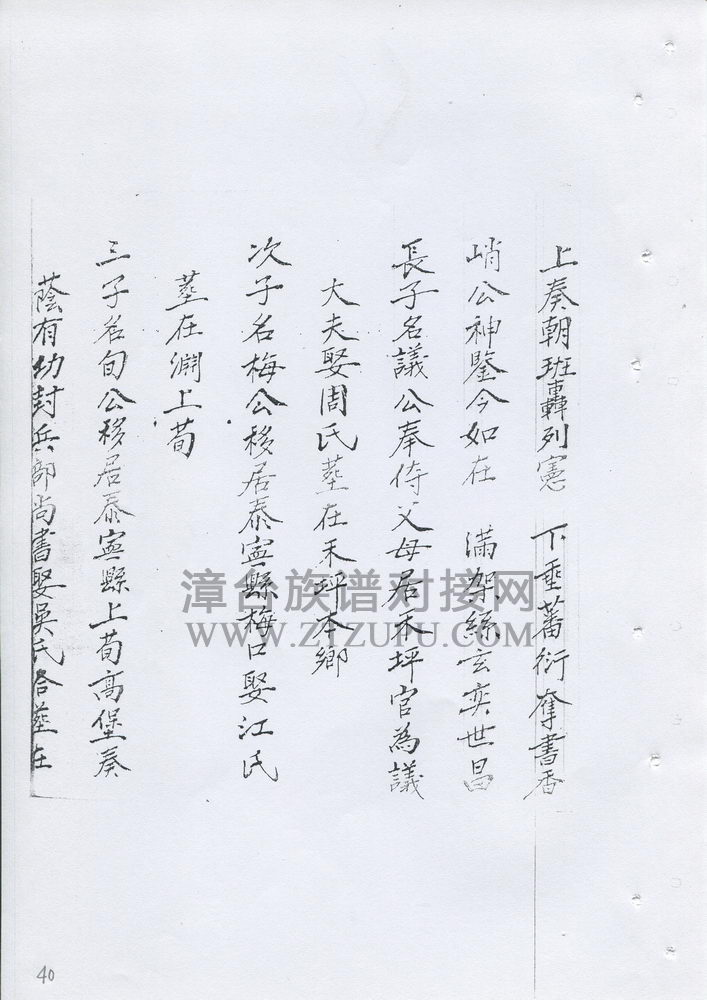 上奏朝班轟列憲 下垂蕃衍奪書香
峭公神鑒今如在 滿架絲玄奕世昌
長子名議公奉侍父母居禾坪官為議
大夫娶周氏塟在禾坪本鄉
次子名梅公移居泰寧縣梅口娶江氏
塟在渊上荀
三子名旬公移居泰寧縣上荀高堡奏
蔭有功封兵部尚書娶吳氏合塟在
漳台族谱对接网
WWW.ZTZUPU.COM
40